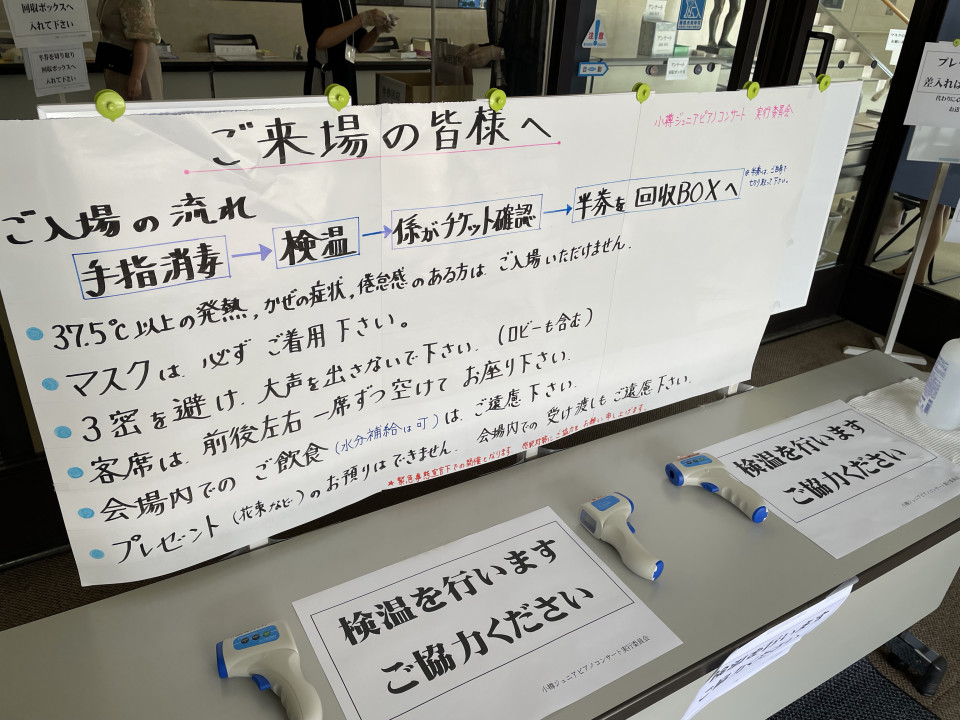 回収ボックスへ
入れて下さい
半券を切り取り
回収ボックスへ
入れて下さい
ご来場の皆様へ
小樽ジュニアピアノコンサート 実行委員会
ご入場の流れ
手指消毒 → 検温 → 係がチケット確認 → 半券を 回収BOXへ
※半券は、ご自身で
切り取って下さい。
37.5℃以上の発熱，かぜの症状，倦怠感のある方は ご入場いただけません．
マスクは 必ず ご着用 下さい。
3密を避け，大声を出さないで下さい．（ロビーも含む）
客席は 前後左右 一席ずつ空けて お座り下さい．
会場内での ご飲食（水分補給は可）は ご遠慮 下さい．
プレゼント（花束など）のお預りはできません． 会場内での 受け渡しもご遠慮 下さい．
※緊急事態宣言下での開催となります 感染対策にご協力をお願い申し上げます
検温を行います
ご協力ください
小樽ジュニアピアノコンサート実行委員会
検温を行います
ご協力ください
検温を行います
注意
自動ドア
アンケート
プレ
差入れは